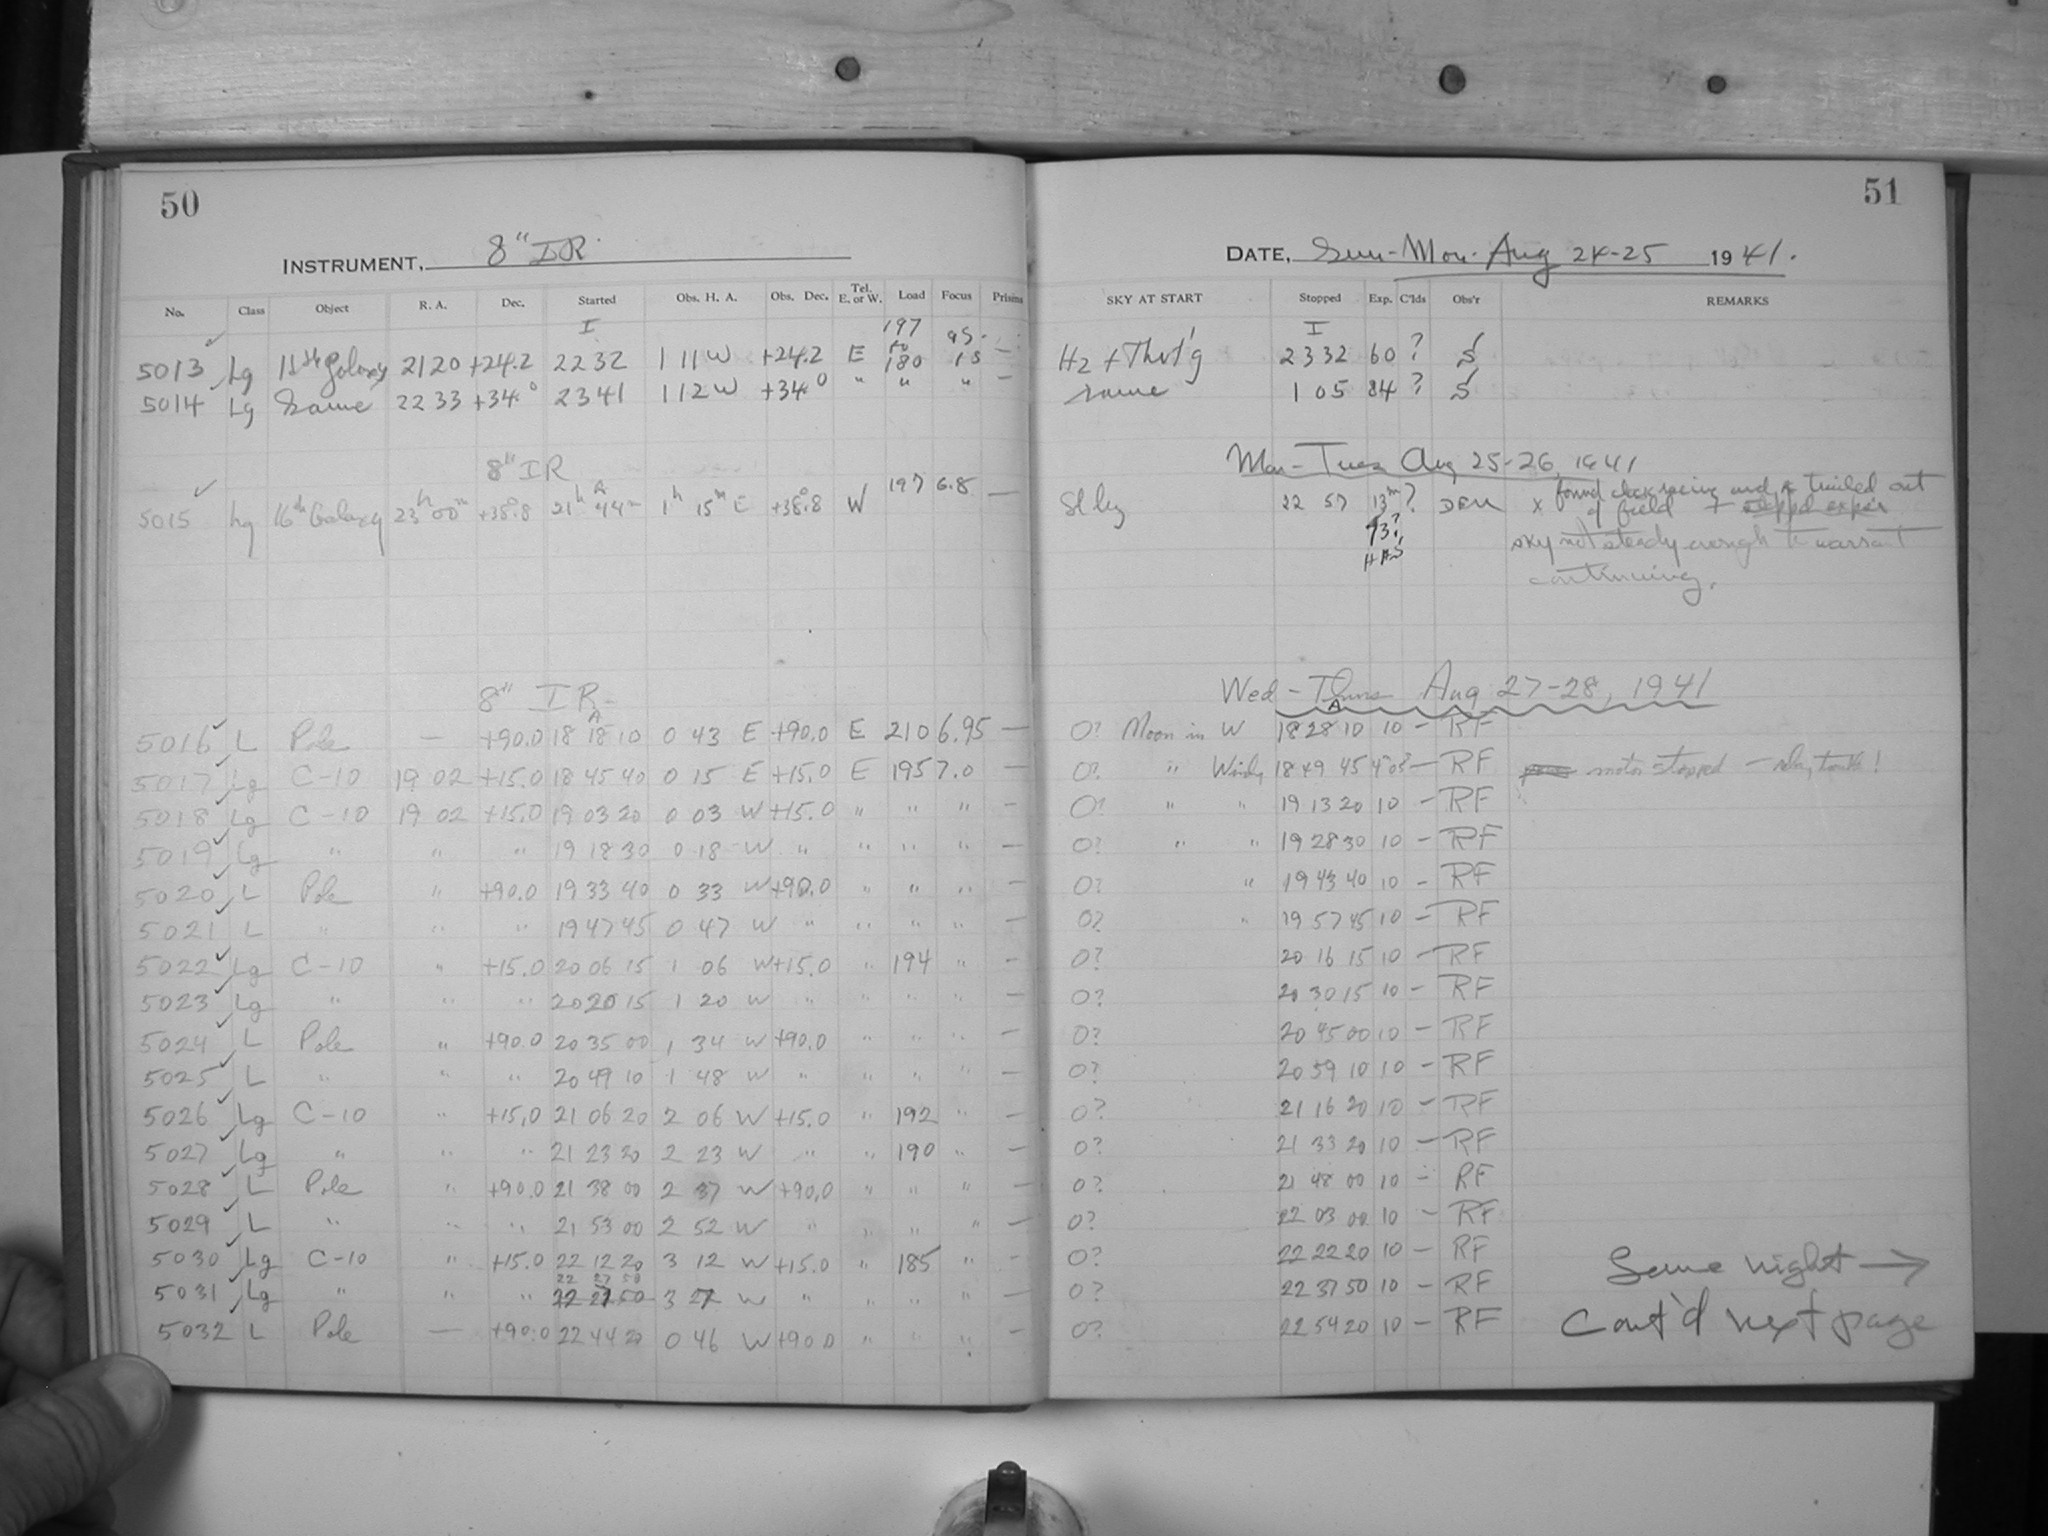 50
INSTRUMENT, 8" IR
No. Class Object R. A. Dec. Started Obs. H. A. Obs. Dec. Tel. E. or W. Load Focus Prisms
I 197 to 180
5013 Lg 11th Galaxy 2120 +24.2 2232 1 11 W +24.2 E —
5014 Lg Same 2233 +34.0 2341 1 12 W +34.0 " " " —
8" IR
5015 Lg 16th Galaxy 23h 00m +38.8 A 21h 44m 1h 15m E +38.8 W 197 6.8 —
8" IR
5016 L Pole — +90.0 A 18 18 10 0 43 E +90.0 E 210 6.95 —
5017 Lg C-10 19 02 +15.0 18 45 40 0 15 E +15.0 E 195 7.0 —
5018 Lg C-10 19 02 +15.0 19 03 20 0 03 W +15.0 " " " —
5019 Lg " " " 19 18 30 0 18 W " " " " —
5020 L Pole " +90.0 19 33 40 0 33 W +90.0 " " " —
5021 L " " " 19 47 45 0 47 W " " " " —
5022 Lg C-10 " +15.0 20 06 15 1 06 W +15.0 " 194 " —
5023 Lg " " " 20 20 15 1 20 W " " " " —
5024 L Pole " +90.0 20 35 00 1 34 W +90.0 " " " —
5025 L " " " 20 49 10 1 48 W " " " " —
5026 Lg C-10 " +15.0 21 06 20 2 06 W +15.0 " 192 " —
5027 Lg " " " 21 23 20 2 23 W " " 190 " —
5028 L Pole " +90.0 21 38 00 2 37 W +90.0 " " " —
5029 L " " " 21 53 00 2 52 W " " " " —
5030 Lg C-10 " +15.0 22 12 20 3 12 W +15.0 " 185 " —
22 27 50
5031 Lg " " " 22 27 50 3 27 W " " " " —
5032 L Pole — +90.0 22 44 20 0 46 W +90.0 " " " —
51
DATE, Sun-Mon. Aug 24-25 1941.
SKY AT START Stopped Exp. C'lds Obs'r REMARKS
I
Hz + Tht'g 2332 60 ? S
same 1 05 84 ? S
Mon-Tues Aug 25-26, 1941
Sl hzy 22 57 13m ? DEM x found clock racing and trailed out
of field + stopped expos
73?
HAS
sky not steady enough to warrant
continuing.
Wed-Thurs Aug 27-28, 1941
A
0? Moon in W 18 28 10 10 — RF
0? " Windy 18 49 45 4 05? — RF motor stopped —
0? " " 19 13 20 10 — RF
0? " " 19 28 30 10 — RF
0? " 19 43 40 10 — RF
0? " 19 57 45 10 — RF
0? 20 16 15 10 — RF
0? 20 30 15 10 — RF
0? 20 45 00 10 — RF
0? 20 59 10 10 — RF
0? 21 16 20 10 — RF
0? 21 33 20 10 — RF
0? 21 48 00 10 — RF
0? 22 03 00 10 — RF
0? 22 22 20 10 — RF
0? 22 37 50 10 — RF
0? 22 54 20 10 — RF
Same night →
Cont'd next page